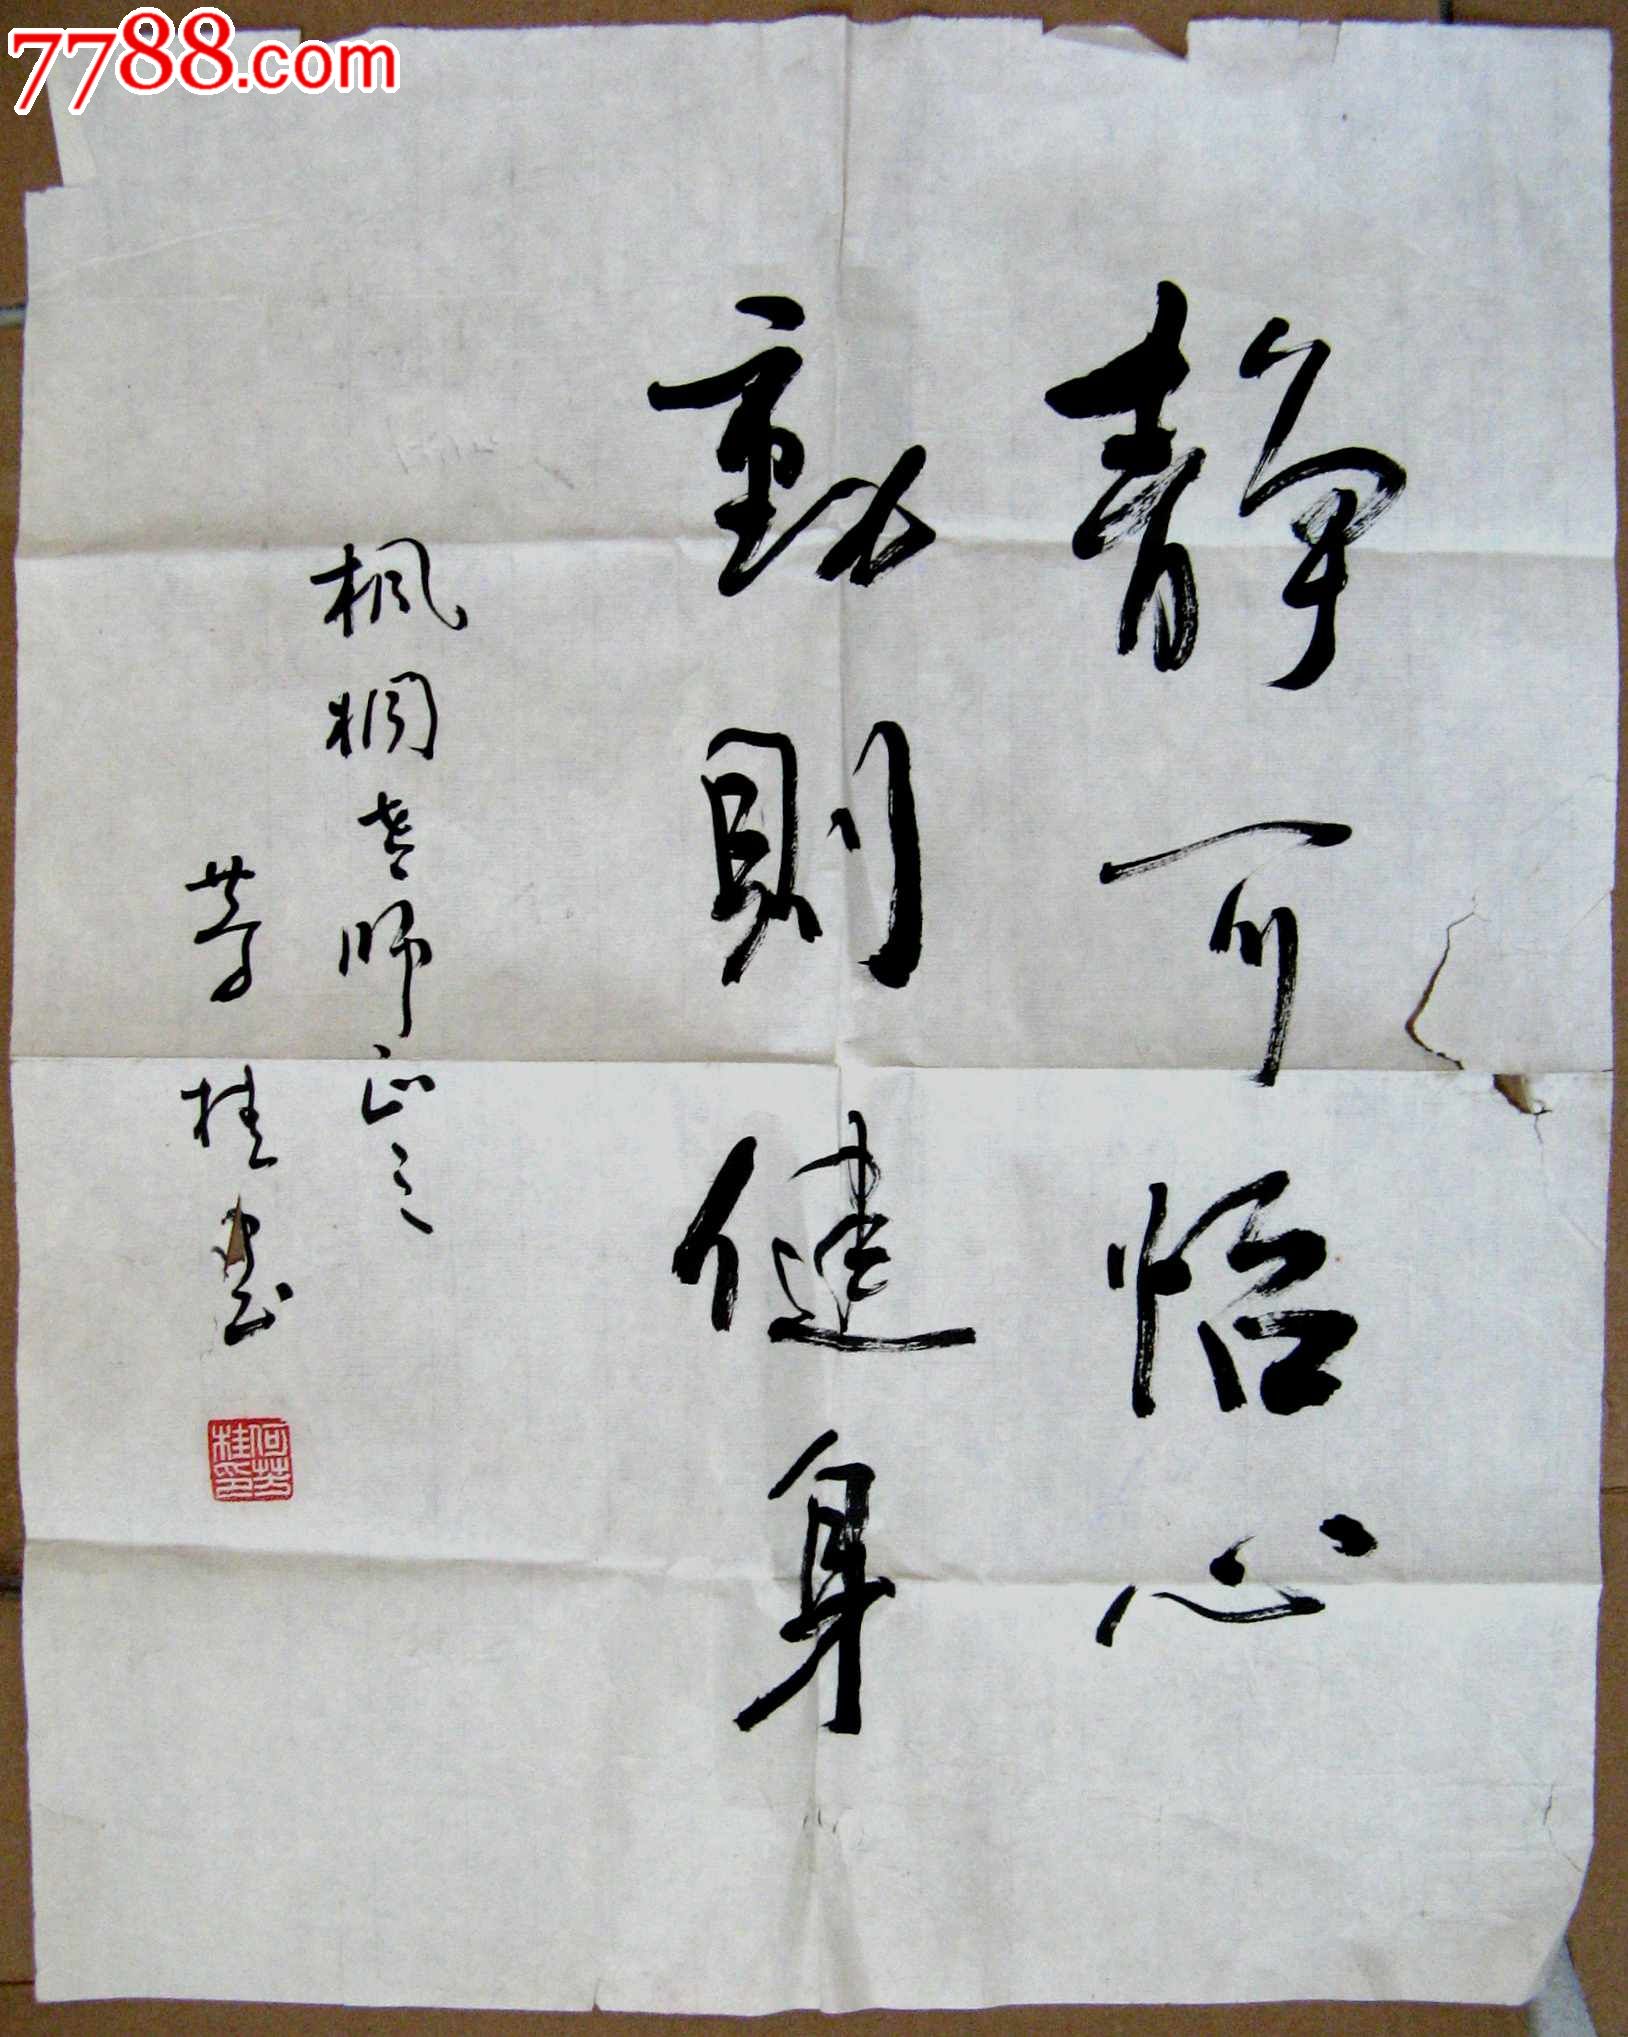 7788.com
静可怡心
動則健身
枫桐老师正之
芳桂书
何芳桂印